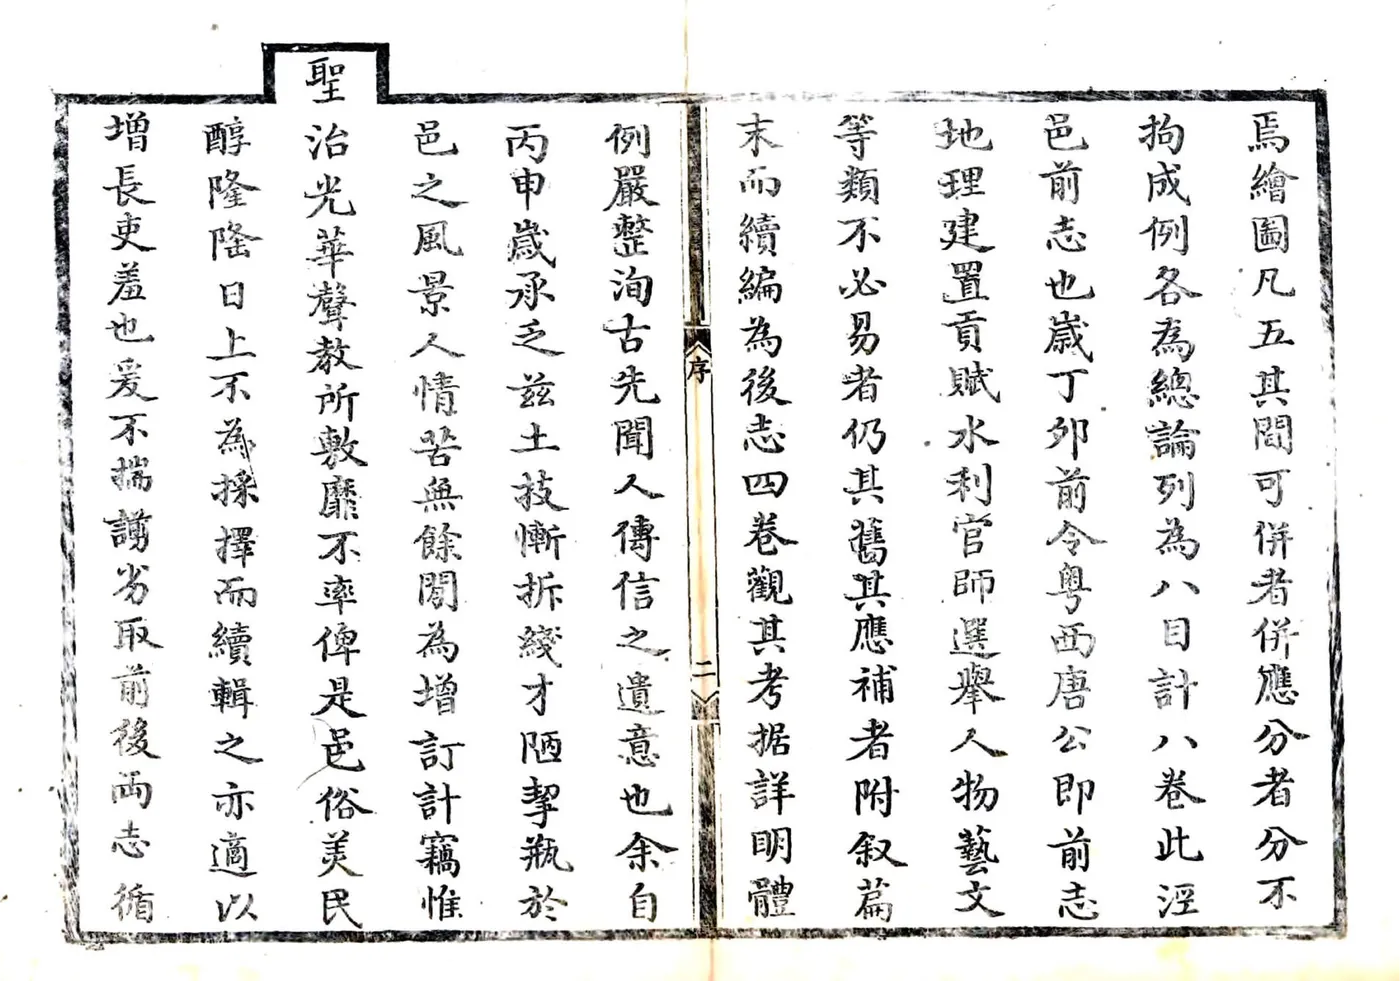 焉繪圖凡五其間可併者併應分者分不
拘成例各為總論列為八目計八卷此涇
邑前志也歲丁卯前令粵西唐公即前志
地理建置貢賦水利官師選舉人物藝文
等類不必易者仍其舊其應補者附叙篇
末而續編為後志四卷觀其考据詳明體
序
二
例嚴整洵古先聞人傳信之遺意也余自
丙申歲承乏茲土技慚拆綫才陋挈瓶於
邑之風景人情苦無餘閒為增訂計竊惟
聖治光華聲教所敷靡不率俾是邑俗美民
醇隆隆日上不為採擇而續輯之亦適以
增長吏羞也爰不揣謭劣取前後両志循